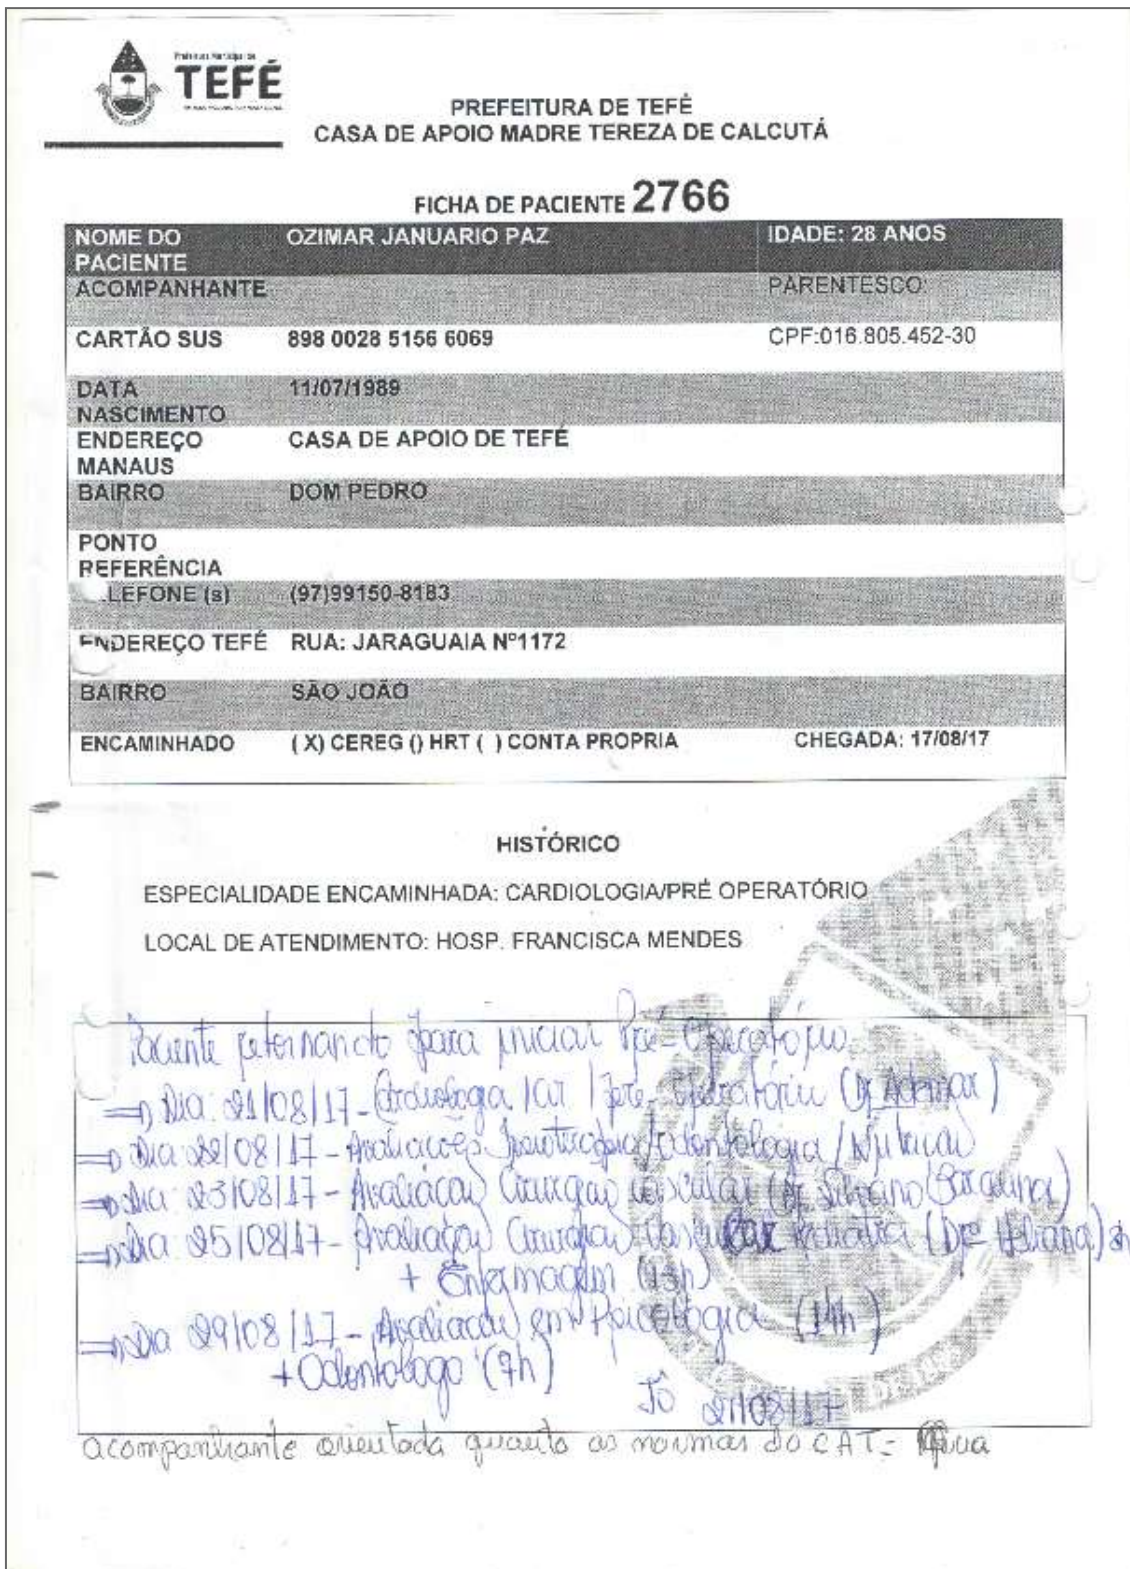 Prefeitura Municipal de
TEFÉ
PREFEITURA DE TEFÉ
CASA DE APOIO MADRE TEREZA DE CALCUTÁ
FICHA DE PACIENTE 2766
NOME DO PACIENTE OZIMAR JANUARIO PAZ IDADE: 28 ANOS
ACOMPANHANTE PARENTESCO:
CARTÃO SUS 898 0028 5156 6069 CPF:016.805.452-30
DATA NASCIMENTO 11/07/1989
ENDEREÇO MANAUS CASA DE APOIO DE TEFÉ
BAIRRO DOM PEDRO
PONTO REFERÊNCIA
LEFONE (s) (97)99150-8183
ENDEREÇO TEFÉ RUA: JARAGUAIA Nº1172
BAIRRO SÃO JOÃO
ENCAMINHADO ( X) CEREG () HRT ( ) CONTA PROPRIA CHEGADA: 17/08/17
HISTÓRICO
ESPECIALIDADE ENCAMINHADA: CARDIOLOGIA/PRÉ OPERATÓRIO
LOCAL DE ATENDIMENTO: HOSP. FRANCISCA MENDES
Paciente retornando para iniciar Pré-Operatório.
=> Dia: 21/08/17 - Cardiologia / Pré-Operatório (Dr Ademar)
=> Dia: 22/08/17 - Avaliações Fisioterapia/Odontologia/Nutrição
=> Dia: 23/08/17 - Avaliação Cirurgião Vascular (Dr.
=> Dia: 25/08/17 - Avaliação Cirurgião (Drª
+ Enfermagem (13h)
=> Dia 29/08/17 - Avaliação em Psicologia (14h)
+ Odontologo (7h)
Jô 21/08/17
acompanhante orientada quanto as normas do CAT=